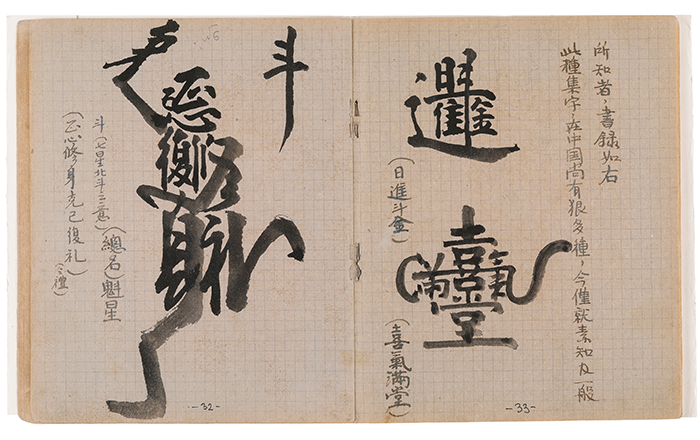 斗
(總名)魁星
斗(七星北斗之意)
(正心修身克己復礼)
(=禮)
-32-
(日進斗金)
喜氣滿堂
(喜氣滿堂)
此種集字,在中国尚有狠多種,今僅就素知及一般
所知者,書録如右
-33-